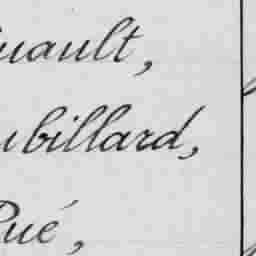 uault,
ubillard,
Rué,